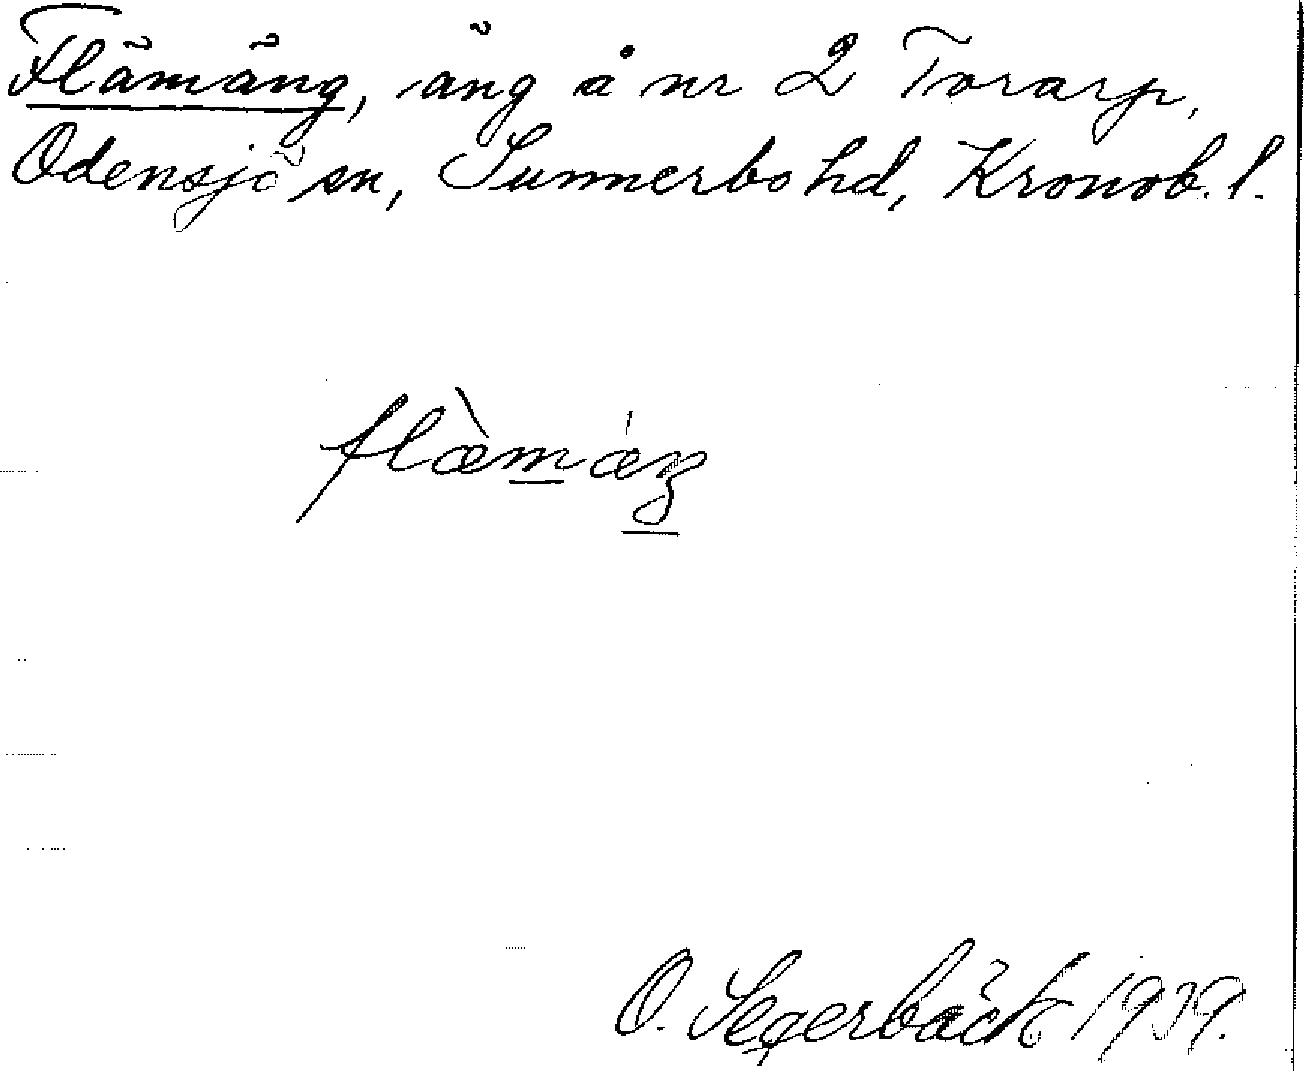 Flämäng, äng å nr 2 Torarp,
Odensjö sn, Sunnerbo hd, Kronob. l.
flæ̀mǽŋ
O. Segerbäck 1939.